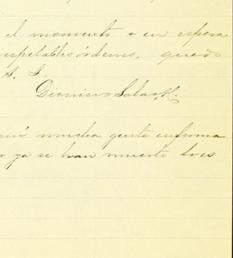 el momento + en espera
respetables órdenes, quedo
S. S.
Dionisio Salas R.
mucha gente enferma
ya se han muerto tres